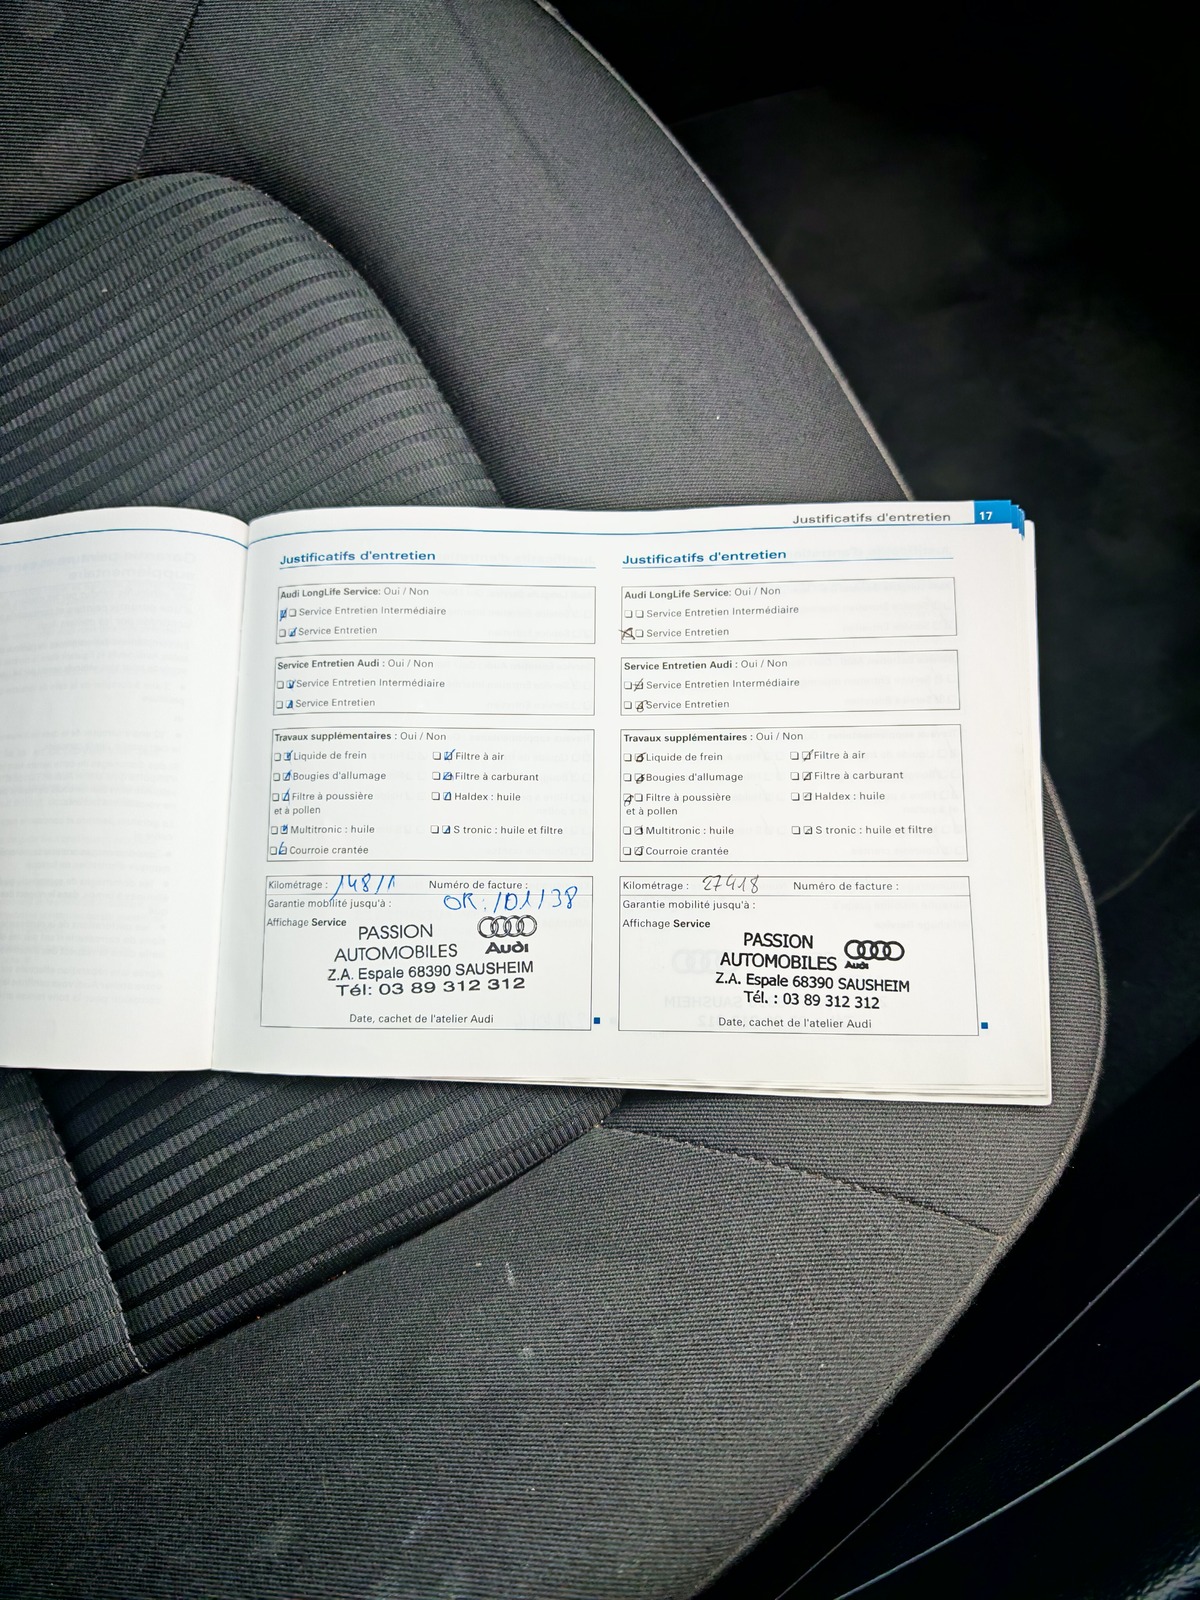 Justificatifs d'entretien 17
Justificatifs d'entretien
Audi LongLife Service: Oui / Non
Service Entretien Intermédiaire
Service Entretien
Service Entretien Audi : Oui / Non
Service Entretien Intermédiaire
Service Entretien
Travaux supplémentaires : Oui / Non
Liquide de frein Filtre à air
Bougies d'allumage Filtre à carburant
Filtre à poussière Haldex : huile
et à pollen
Multitronic : huile S tronic : huile et filtre
Courroie crantée
Kilométrage : Numéro de facture :
Garantie mobilité jusqu'à :
Affichage Service
PASSION
AUTOMOBILES Audi
Z.A. Espale 68390 SAUSHEIM
Tél: 03 89 312 312
Date, cachet de l'atelier Audi
Justificatifs d'entretien
Audi LongLife Service: Oui / Non
Service Entretien Intermédiaire
Service Entretien
Service Entretien Audi : Oui / Non
Service Entretien Intermédiaire
Service Entretien
Travaux supplémentaires : Oui / Non
Liquide de frein Filtre à air
Bougies d'allumage Filtre à carburant
Filtre à poussière Haldex : huile
et à pollen
Multitronic : huile S tronic : huile et filtre
Courroie crantée
Kilométrage : 27418 Numéro de facture :
Garantie mobilité jusqu'à :
Affichage Service
PASSION
AUTOMOBILES Audi
Z.A. Espale 68390 SAUSHEIM
Tél. : 03 89 312 312
Date, cachet de l'atelier Audi